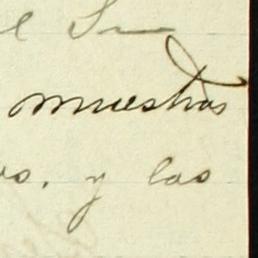 el Sr
muestras
os. y las